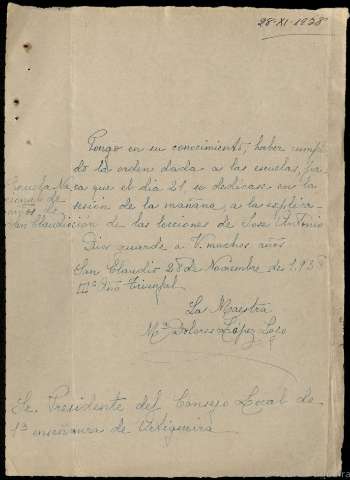 28-XI-1938
Pongo en su conocimiento, haber cumpli-
do la orden dada a las escuelas, pa-
ra que el día 21, se dedicase en la
sesión de la mañana, a la esplica-
ción de las lecciones de José Antonio
Dios guarde a V. muchos años
San Claudio 28 de Noviembre de 1.938
III º Año Triunfal
La Maestra
Mª Dolores López
Escuela Na-
cional de
niñas de
San Claudio
Sr. Presidente del Consejo Local de
1ª enseñanza de Ortigueira